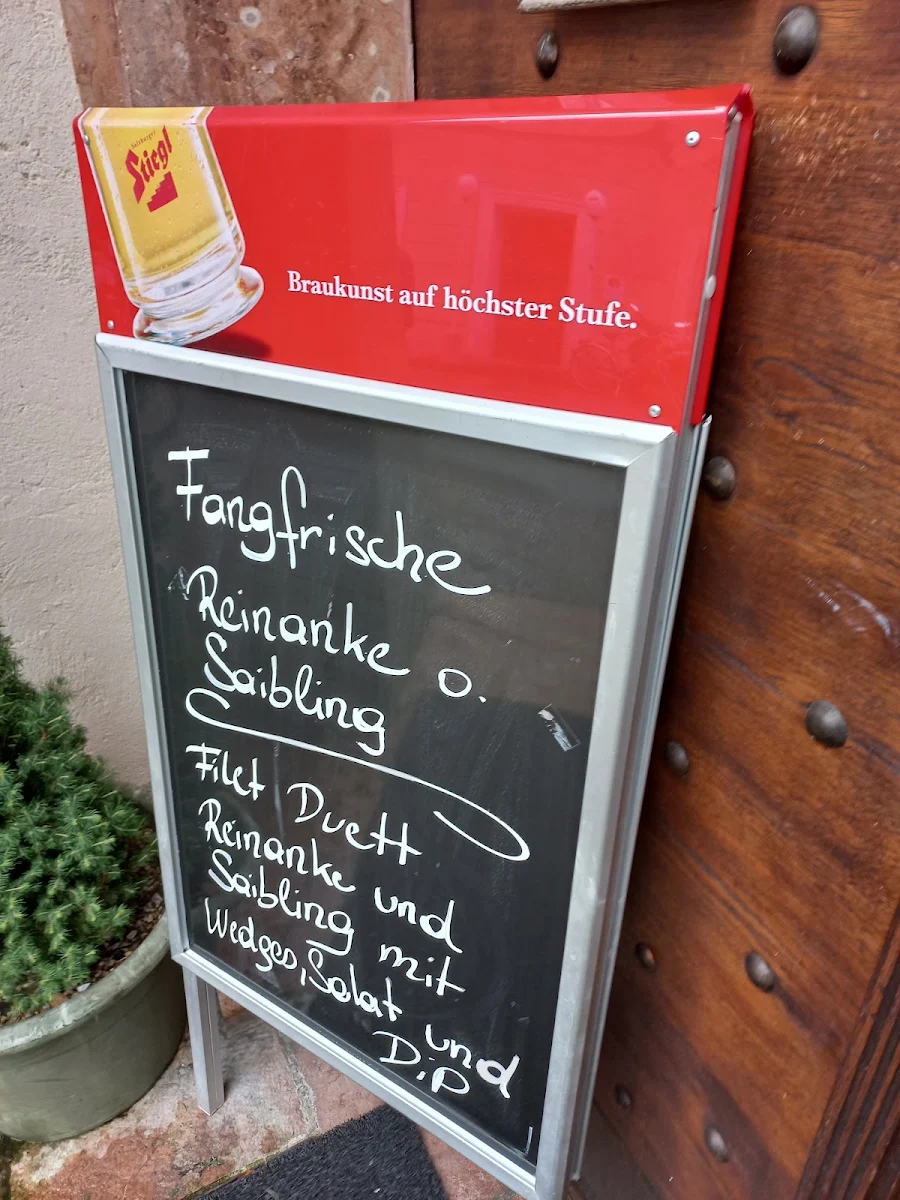 Salzburger
Stiegl
Braukunst auf höchster Stufe.
Fangfrische
Reinanke o.
Saibling
Filet Duett
Reinanke und
Saibling mit
Wedges, Salat und
Dip